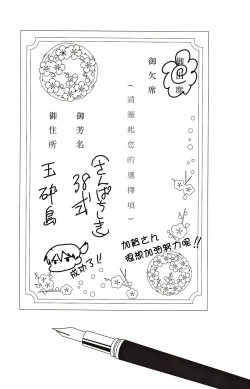 御出席
御欠席
(請圈起您的選擇項)
御芳名
(さんぱちしき)
38式
御住所
玉砕島
成功了!!
加賀さん